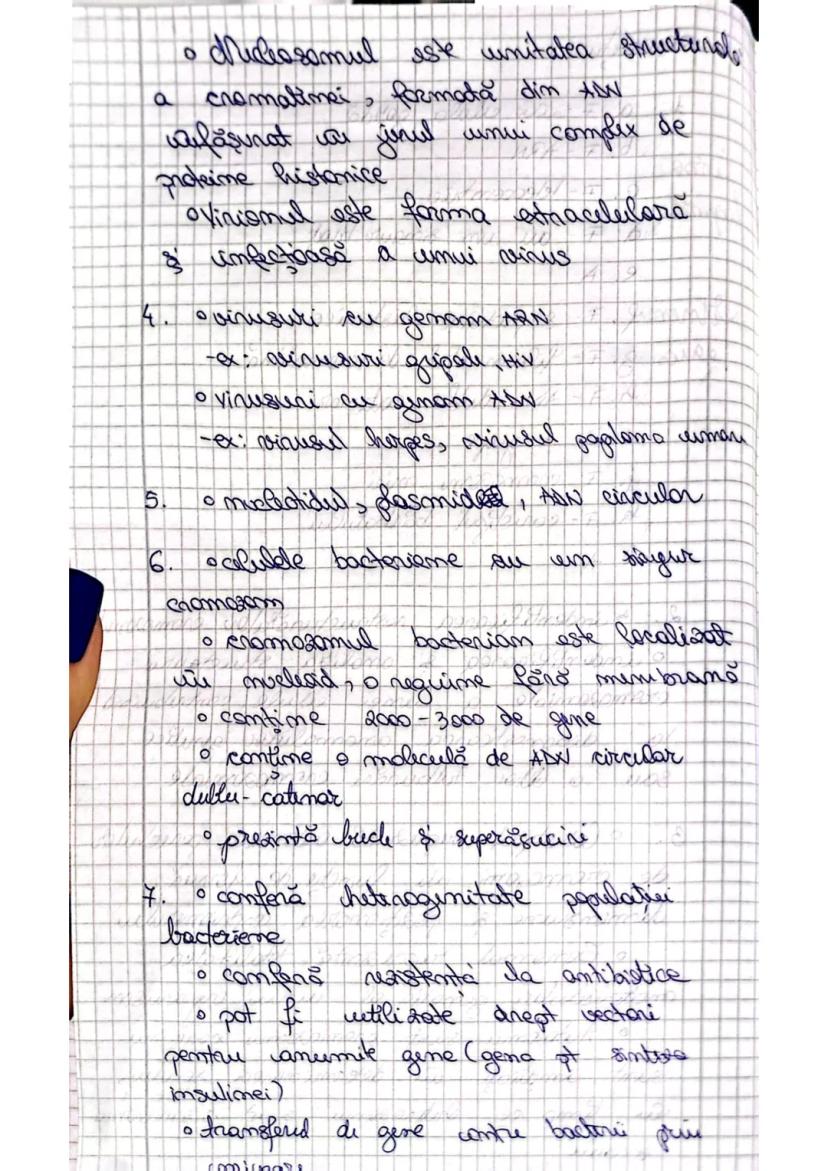 o Nucleosomul este unitatea structurală
a cromatinei, formată din ADN
înfășurat în jurul unui complex de
proteine histonice
o Virionul este forma extracelulară
și infecțioasă a unui virus
4. o virusuri cu genom ARN
-ex: virusuri gripale, HIV
o virusuri cu genom ADN
-ex: virusul herpes, virusul papiloma uman
5. o nucleotidul, plasmida, ADN circular
6. o celulele bacteriene au un singur
cromozom
o cromozomul bacterian este localizat
în nucleoid, o regiune fără membrană
o conține 2000-3000 de gene
o conține o moleculă de ADN circular
dublu-catenar
o prezintă bucle și superrăsuciri
7. o conferă heterogenitate populației
bacteriene
o conferă rezistență la antibiotice
o pot fi utilizate drept vectori
pentru anumite gene (gena pt sinteza
insulinei)
o transferul de gene între bacterii prin
conjugare